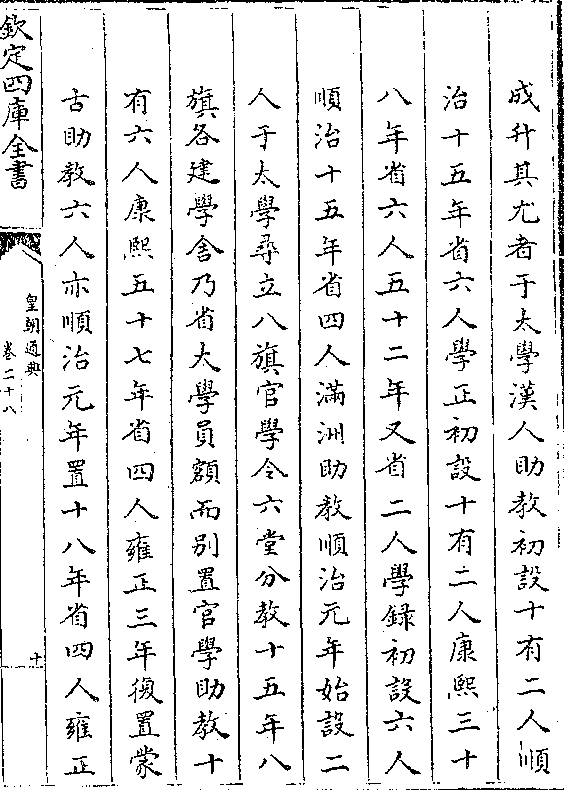 成升其尤者于太學漢人助教初設十有二人順
治十五年省六人學正初設十有二人康熙三十
八年省六人五十二年又省二人學録初設六人
順治十五年省四人滿洲助教順治元年始設二
人于太學尋立八旗官學令六堂分教十五年八
旗各建學舍乃省太學員額而别置官學助教十
有六人康熙五十七年省四人雍正三年復置蒙
古助教六人亦順治元年置十八年省四人雍正
欽定四庫全書
皇朝通典
卷二十八
十